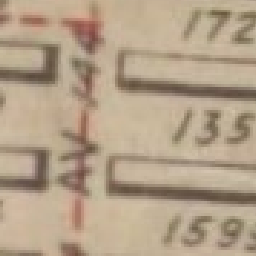 172
AV 144
135
159